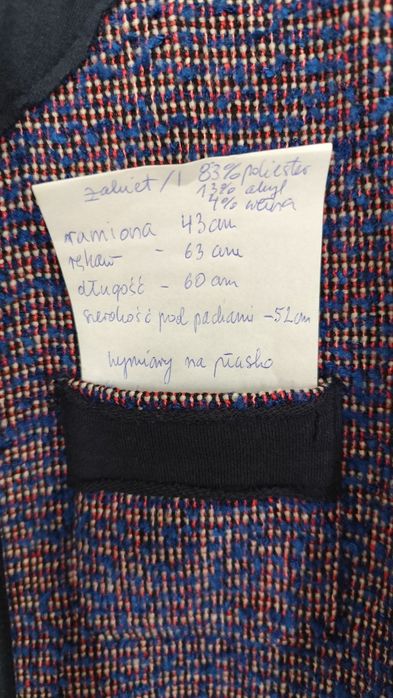 żakiet / L 83% poliester
13% akryl
4% wełna
ramiona 43 cm
rękaw - 63 cm
długość - 60 cm
szerokość pod pachami - 52 cm
wymiary na płasko